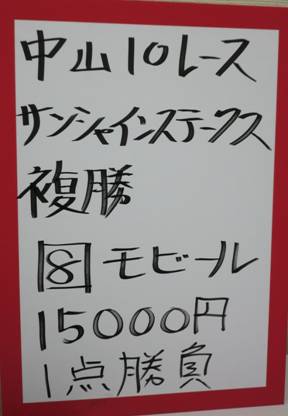 中山10レース
サンシャインステークス
複勝
8 モビール
15000円
1点勝負